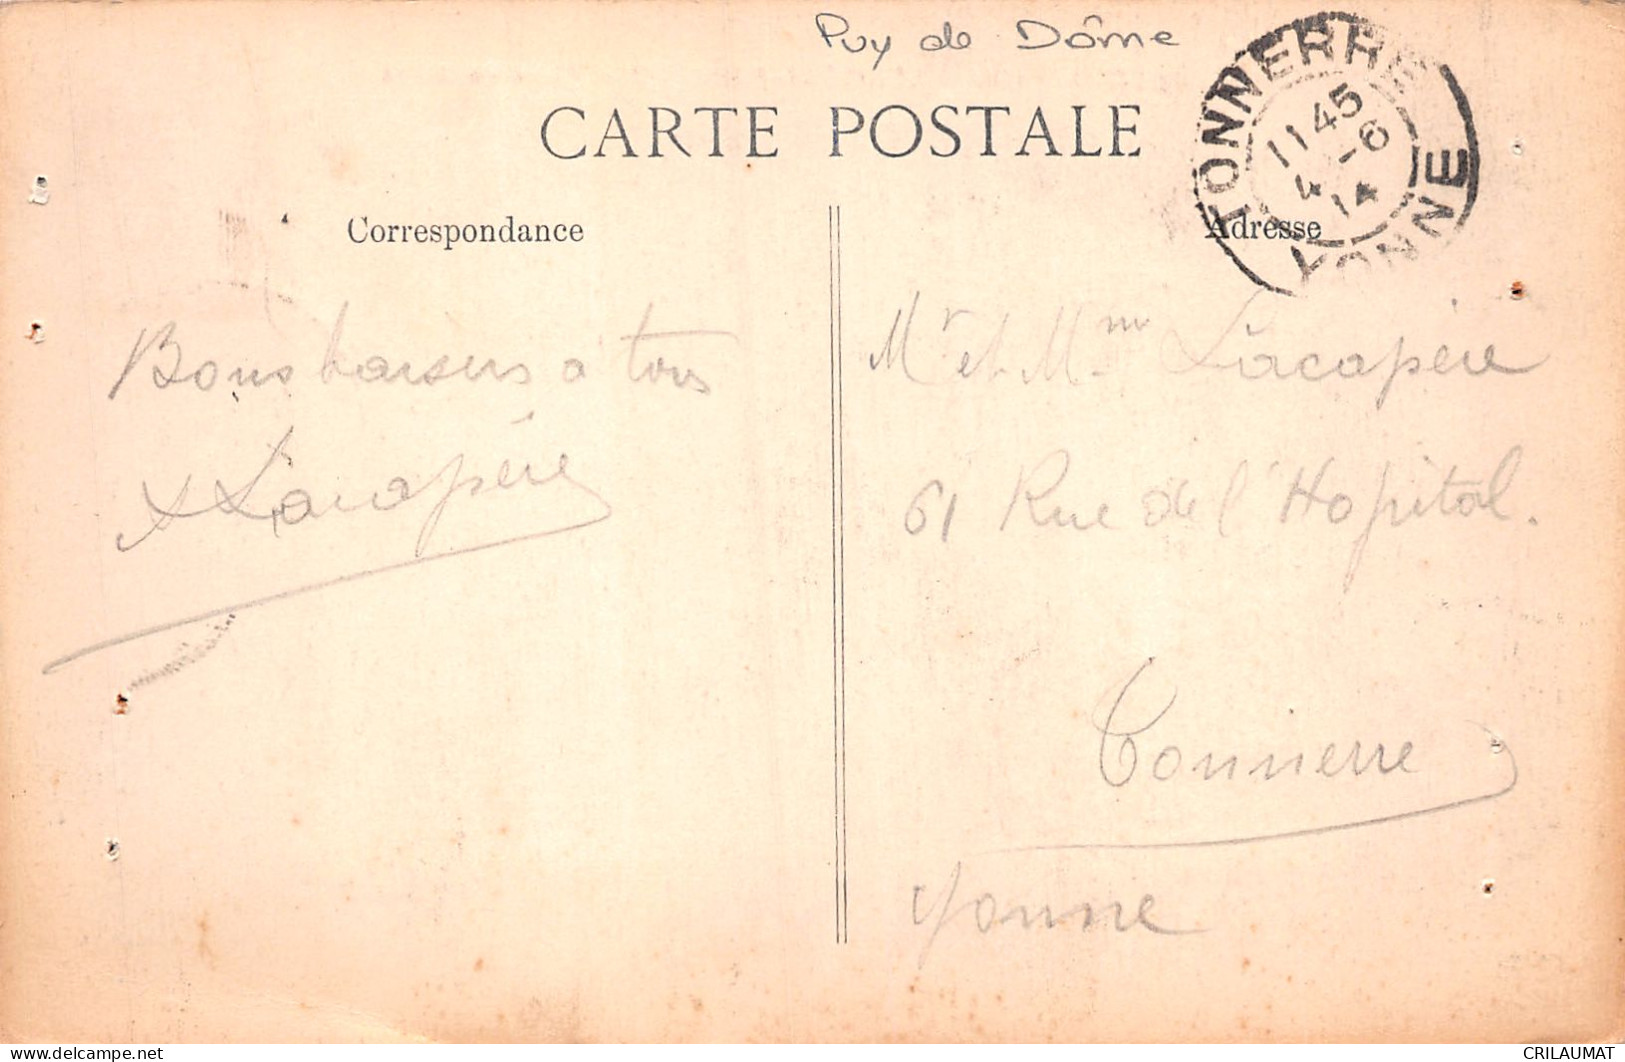 Puy de Dôme
CARTE POSTALE
TONNERRE
11 45
4 - 6
14
YONNE
Correspondance
Adresse
Bons baisers a tous
Lacapère
Mr et Mme Lacapère
61 Rue de l'Hopital.
Tonnerre
Yonne
CRILAUMAT